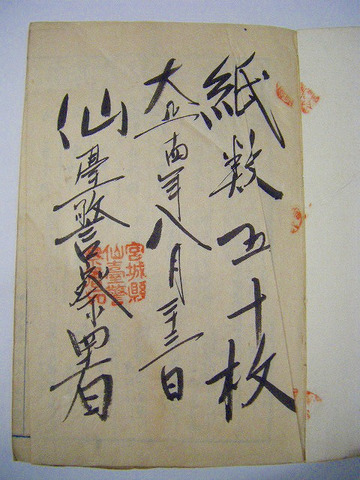 紙数五十枚
大正十四年八月二十三日
仙臺警察署
宮城縣
仙臺警